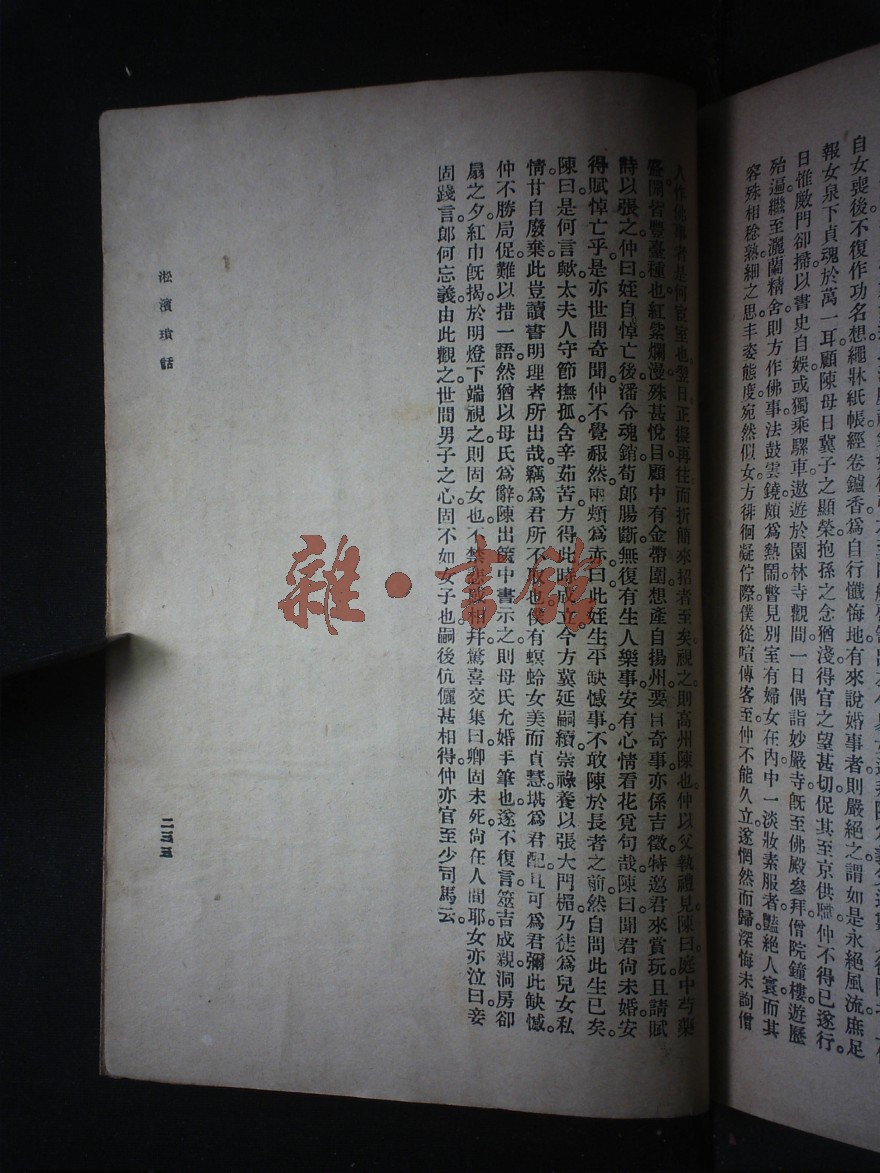 自女喪後不復作功名想繩牀紙帳經卷鑪香爲自行懺悔地有來說婚事者則嚴絕之謂如是永絕風流庶足
報女泉下貞魂於萬一耳顧陳母日冀子之顯榮抱孫之念猶淺得官之望甚切促其至京供職仲不得已遂行
日惟敵門卻掃以書史自娛或獨乘騾車遨遊於園林寺觀間一日偶詣妙嚴寺旣至佛殿參拜僧院鐘樓遊歷
殆遍繼至灑蘭精舍則方作佛事法鼓雲鐃頗爲熱鬧瞥見別室有婦女在內中一淡妝素服者豔絕人寰而其
容殊相稔熟細之思丰姿態度宛然似女方徘徊凝佇際僕從喧傳客至仲不能久立遂惘然而歸深悔未詢僧
人作佛事者是何宦室也。翌日。正擬再往。而折簡來招者至矣。視之。則高州陳也。仲以父執禮見。陳曰。庭中芍藥
盛開。皆豐臺種也。紅紫爛漫。殊甚悅目。顧中有金帶圍。想產自揚州。要曰奇事。亦係吉徵。特邀君來賞玩。且請賦
詩以張之。仲曰。姪自悼亡後。潘令魂銷。荀郞腸斷。無復有生人樂事。安有心情看花覓句哉。陳曰。聞君尙未婚。安
得賦悼亡乎。是亦世間奇聞。仲不覺赧然。兩頰爲赤。曰。此姪生平缺憾事。不敢陳於長者之前。然自問此生已矣。
陳曰。是何言歟。太夫人守節撫孤。含辛茹苦。方得此時成立。今方冀延嗣續。崇祿養。以張大門楣。乃徒爲兒女私
情。甘自廢棄。此豈讀書明理者所出哉。竊爲君所不取也。僕有螟蛉女。美而貞慧。堪爲君配。且可爲君彌此缺憾。
仲不勝局促。難以措一語。然猶以母氏爲辭。陳出篋中書示之。則母氏允婚手筆也。遂不復言。筮吉成親。洞房卻
扇之夕。紅巾旣揭。於明燈下端視之。則固女也。不禁悲歎相幷。驚喜交集。曰。卿固未死。尙在人間耶。女亦泣曰。妾
固踐言。郞何忘義。由此觀之。世間男子之心。固不如女子也。嗣後伉儷甚相得。仲亦官至少司馬云。
淞濱瑣話
二三五
雜·書館